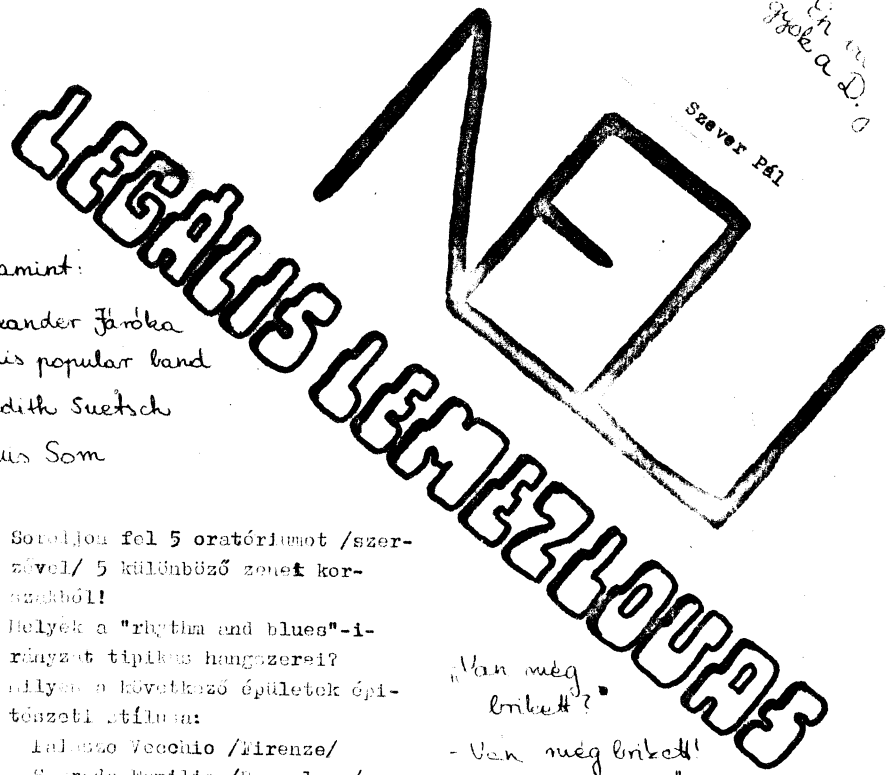 Én va
gyok a D.
Szever Pál
LEGÁLIS LEMEZLOVAS
amint:
xander Járóka
is popular band
dith Suetsch
uis Som
Soroljon fel 5 oratóriumot /szer-
zővel/ 5 különböző zenei kor-
szakból!
Melyek a "rhythm and blues"-i-
rányzat tipikus hangszerei?
Milyen a következő épületek épi-
tészeti stílusa:
Palazzo Vecchio /Firenze/
„Van még
brikett?"
- Van még brikett!